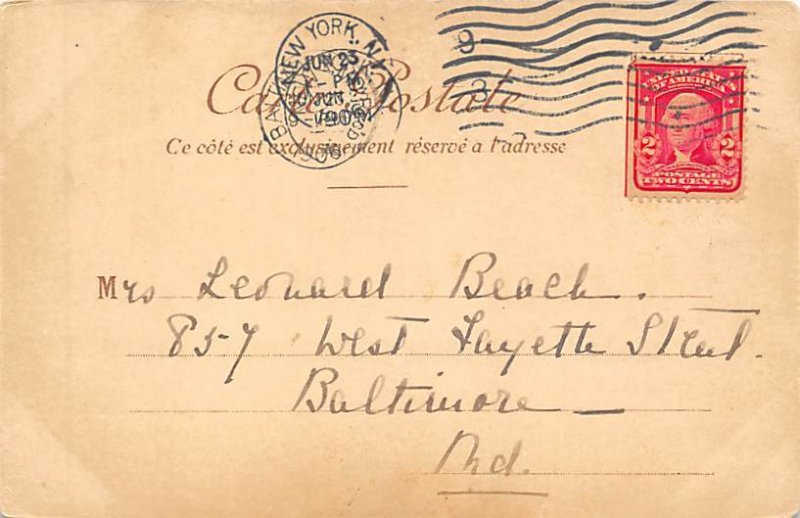 NEW YORK, N.Y.
JUN 23
9
3
Carte Postale
UNITED STATES
OF AMERICA
2 2
POSTAGE
TWO CENTS
Ce côté est exclusivement réservé a l'adresse
Mrs Leonard Beach.
857 West Fayette Street.
Baltimore —
Md.